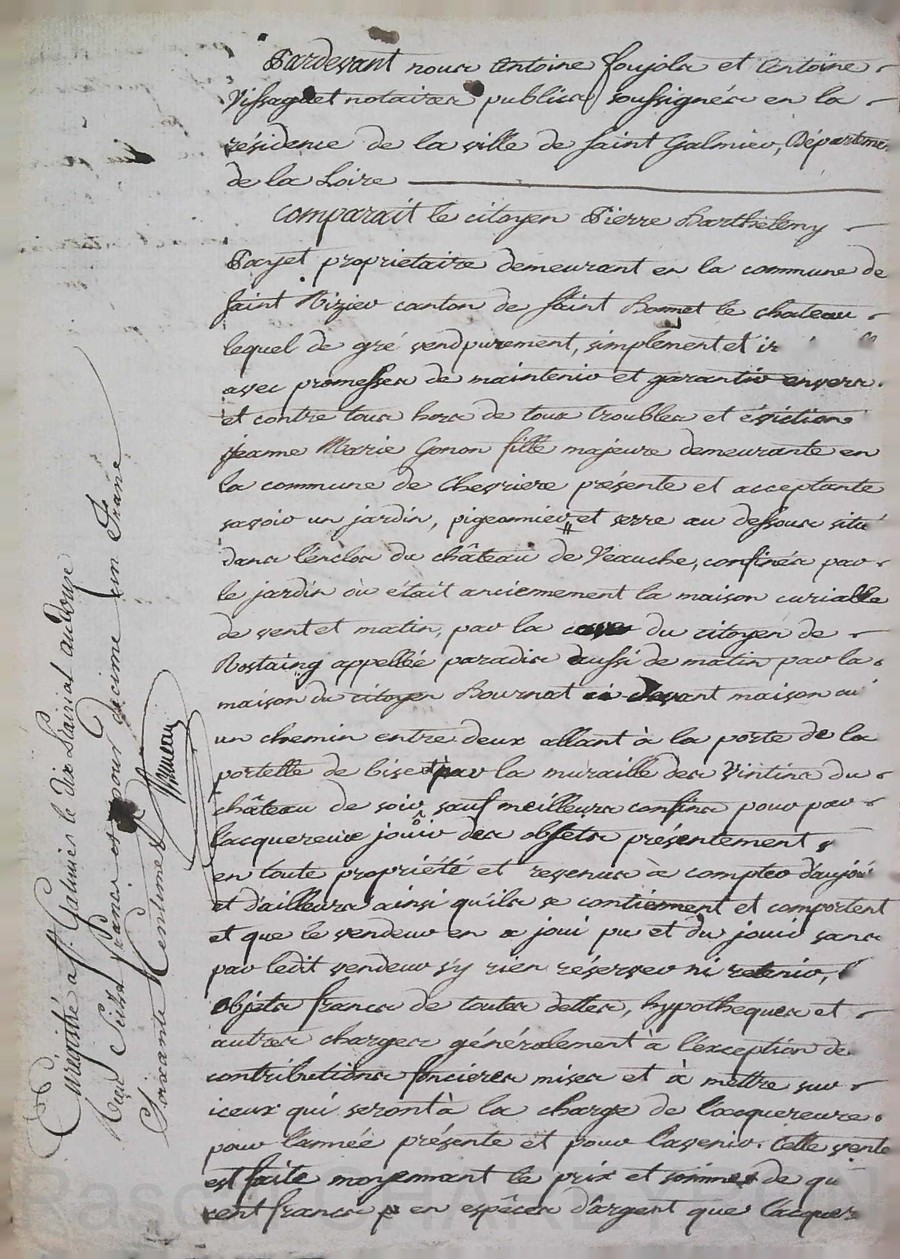 Pardevant nous Antoine foujols et Antoine
Vissaguet notaires publics soussignés en la
résidence de la ville de saint Galmier, Départeme
de la Loire
comparait le citoyen Pierre Barthelemy
Payet propriétaire demeurant en la commune de
saint Nizier canton de saint Bonnet le chateau
lequel de gré vend purement, simplement et ir
avec promesses de maintenir et garantir envers
et contre tous hors de tous troubles et éviction
jeanne Marie Gonon fille majeure demeurante en
la commune de Chevriere présente et acceptante
savoir un jardin, pigeonnier et serre au dessous situé
dans l'enclos du château de Veauche, confinés par
le jardin où était anciennement la maison curialle
de vent et matin, par la du citoyen de
Rostaing appellée paradis aussi de matin par la
maison du citoyen Bournat ci devant maison cu
un chemin entre deux allant à la porte de la
portelle de bise par la muraille des Vintins du
château de soir, sauf meilleurs confins pour par
lacquereuse jouir des objets présentement
en toute propriété et revenus à compter d'aujou
et d'ailleurs ainsi qu'ils se contiennent et comportent
et que le vendeur en a joui pu et du jouir sans
par ledit vendeur s'y rien réserver ni retenir,
objets francs de toutes dettes, hypotheques et
autres charges généralement a l'exception de
contributions foncieres mises et à mettre sur
iceux qui seront à la charge de l'acquereure
pour l'année présente et pour l'avenir. Cette vente
est faite moyennant le prix et somme de qu
cent francs en espèces d'argent que l'acquer
Enregistré a St. Galmier le dix
Reçu francs et pour décime un Franc
Soixante Centimes
Rascal CHAREYRON